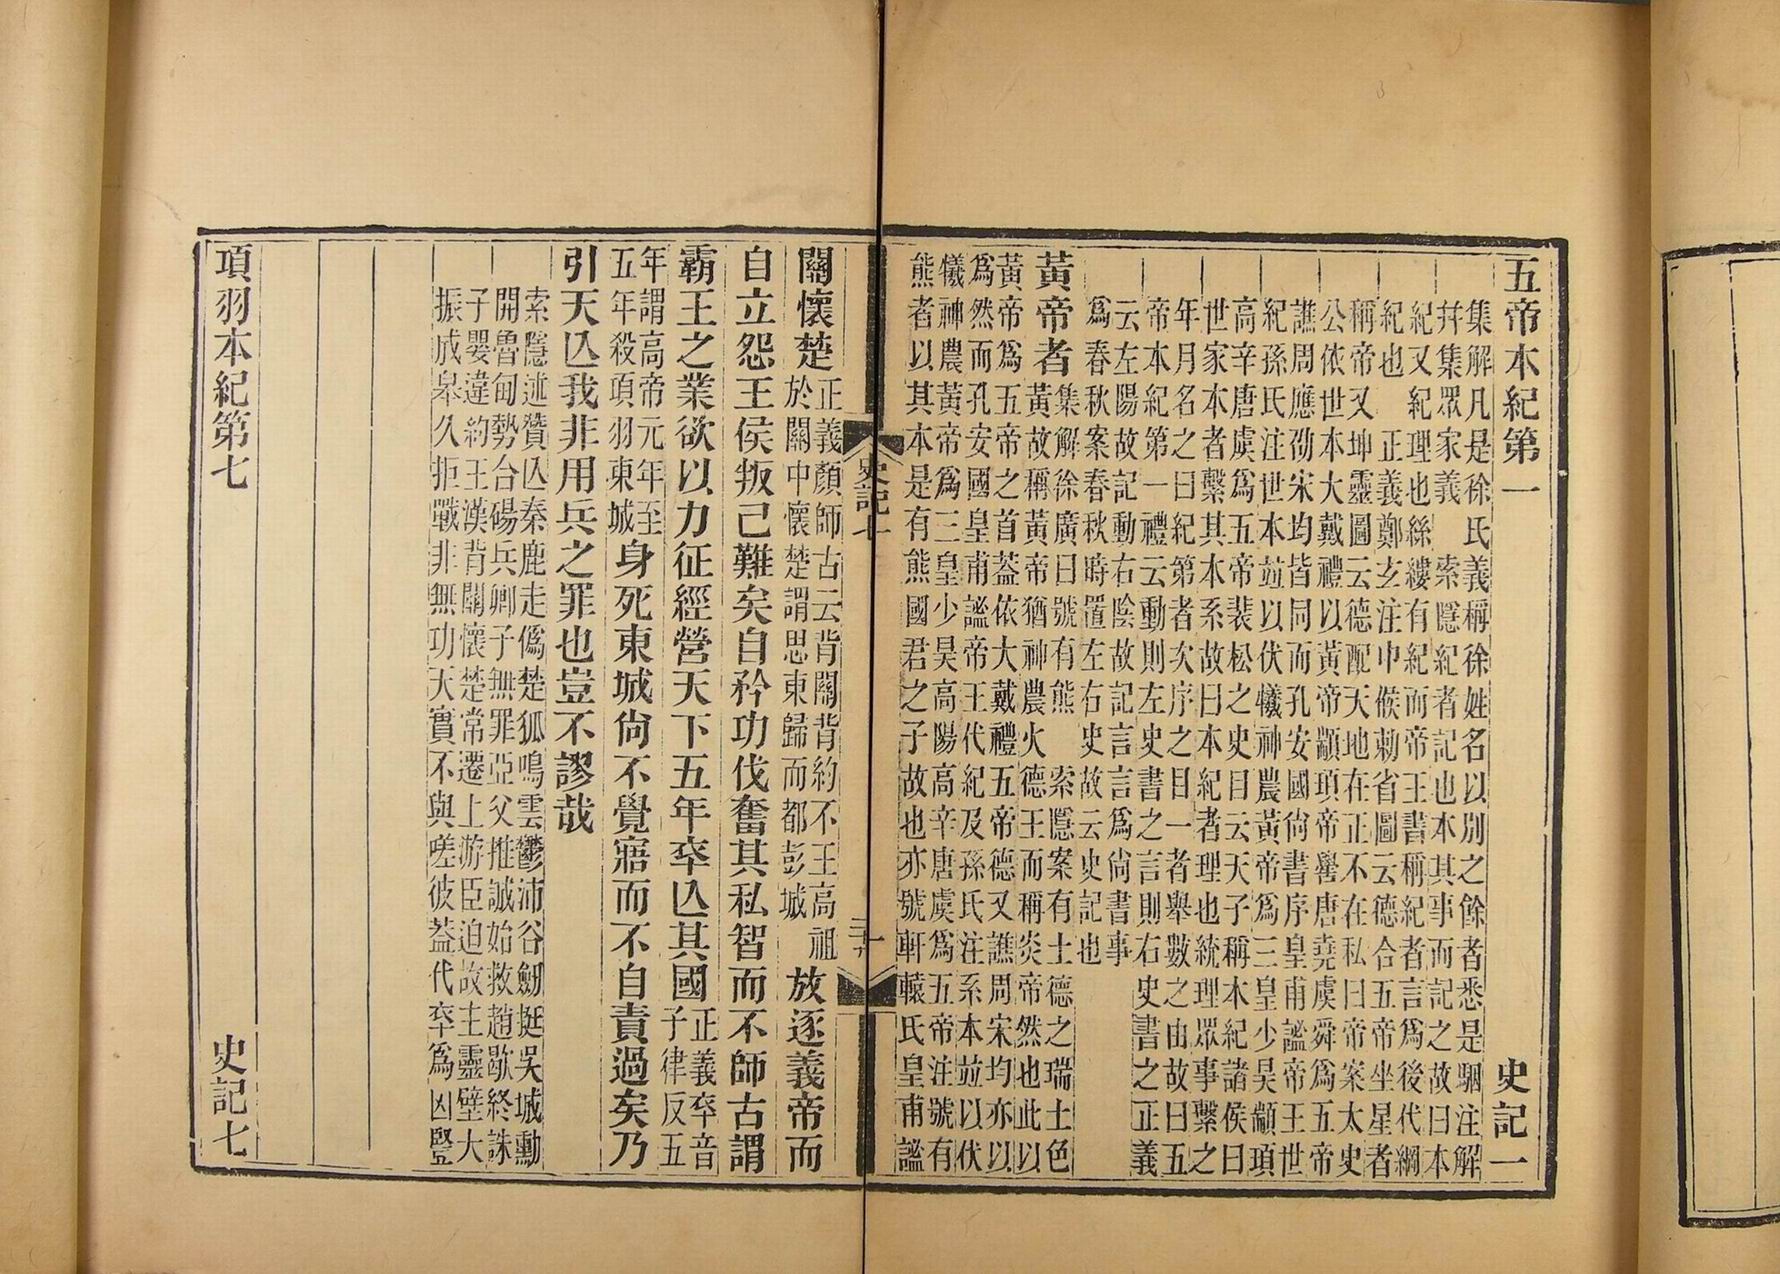 五帝本紀第一 史記一
集解凡是徐氏義稱徐姓名以別之餘者悉是駰注解
幷集眾家義 索隱紀者記也本其事而記之故曰本
紀又紀理也絲縷有紀而帝王書稱紀者言爲後代綱
紀也 正義鄭玄注中候勑省圖云德合五帝坐星者
稱帝又坤靈圖云德配天地在正不在私曰帝案太史
公依世本大戴禮以黃帝顓頊帝嚳唐堯虞舜爲五帝
譙周應劭宋均皆同而孔安國尙書序皇甫謐帝王世
紀孫氏注世本竝以伏犧神農黃帝爲三皇少昊顓頊
高辛唐虞爲五帝裴松之史目云天子稱本紀諸侯曰
世家本者繫其本系故曰本紀者理也統理眾事繫之
年月名之曰紀第者次序之目一者舉數之由故曰五
帝本紀第一禮云動則左史書之言則右史書之正義
云左陽故記動右陰故記言言爲尙書事
爲春秋案春秋時置左右史故云史記也
黃帝者
集解徐廣曰號有熊 索隱案有土德之瑞土色
黃故稱黃帝猶神農火德王而稱炎帝然也此以
黃帝爲五帝之首蓋依大戴禮五帝德又譙周宋均亦以
爲然而孔安國皇甫謐帝王代紀及孫氏注系本竝以伏
犧神農黃帝爲三皇少昊高陽高辛唐虞爲五帝注號有
熊者以其本是有熊國君之子故也亦號軒轅氏皇甫謐
史記七
關懷楚
正義顏師古云背關背約不王高祖
於關中懷楚謂思東歸而都彭城
放逐義帝而
自立怨王侯叛己難矣自矜功伐奮其私智而不師古謂
霸王之業欲以力征經營天下五年卒亾其國
正義卒音
子律反五
年謂高帝元年至
五年殺項羽東城
身死東城尙不覺寤而不自責過矣乃
引天亾我非用兵之罪也豈不謬哉
索隱述贊亾秦鹿走僞楚狐鳴雲鬱沛谷劒挺吳城勳
開魯甸勢合碭兵卿子無罪亞父推誠始救趙歇終誅
子嬰違約王漢背關懷楚常遷上游臣迫故主靈壁大
振成皋久拒戰非無功天實不與嗟彼蓋代卒爲凶豎
項羽本紀第七 史記七